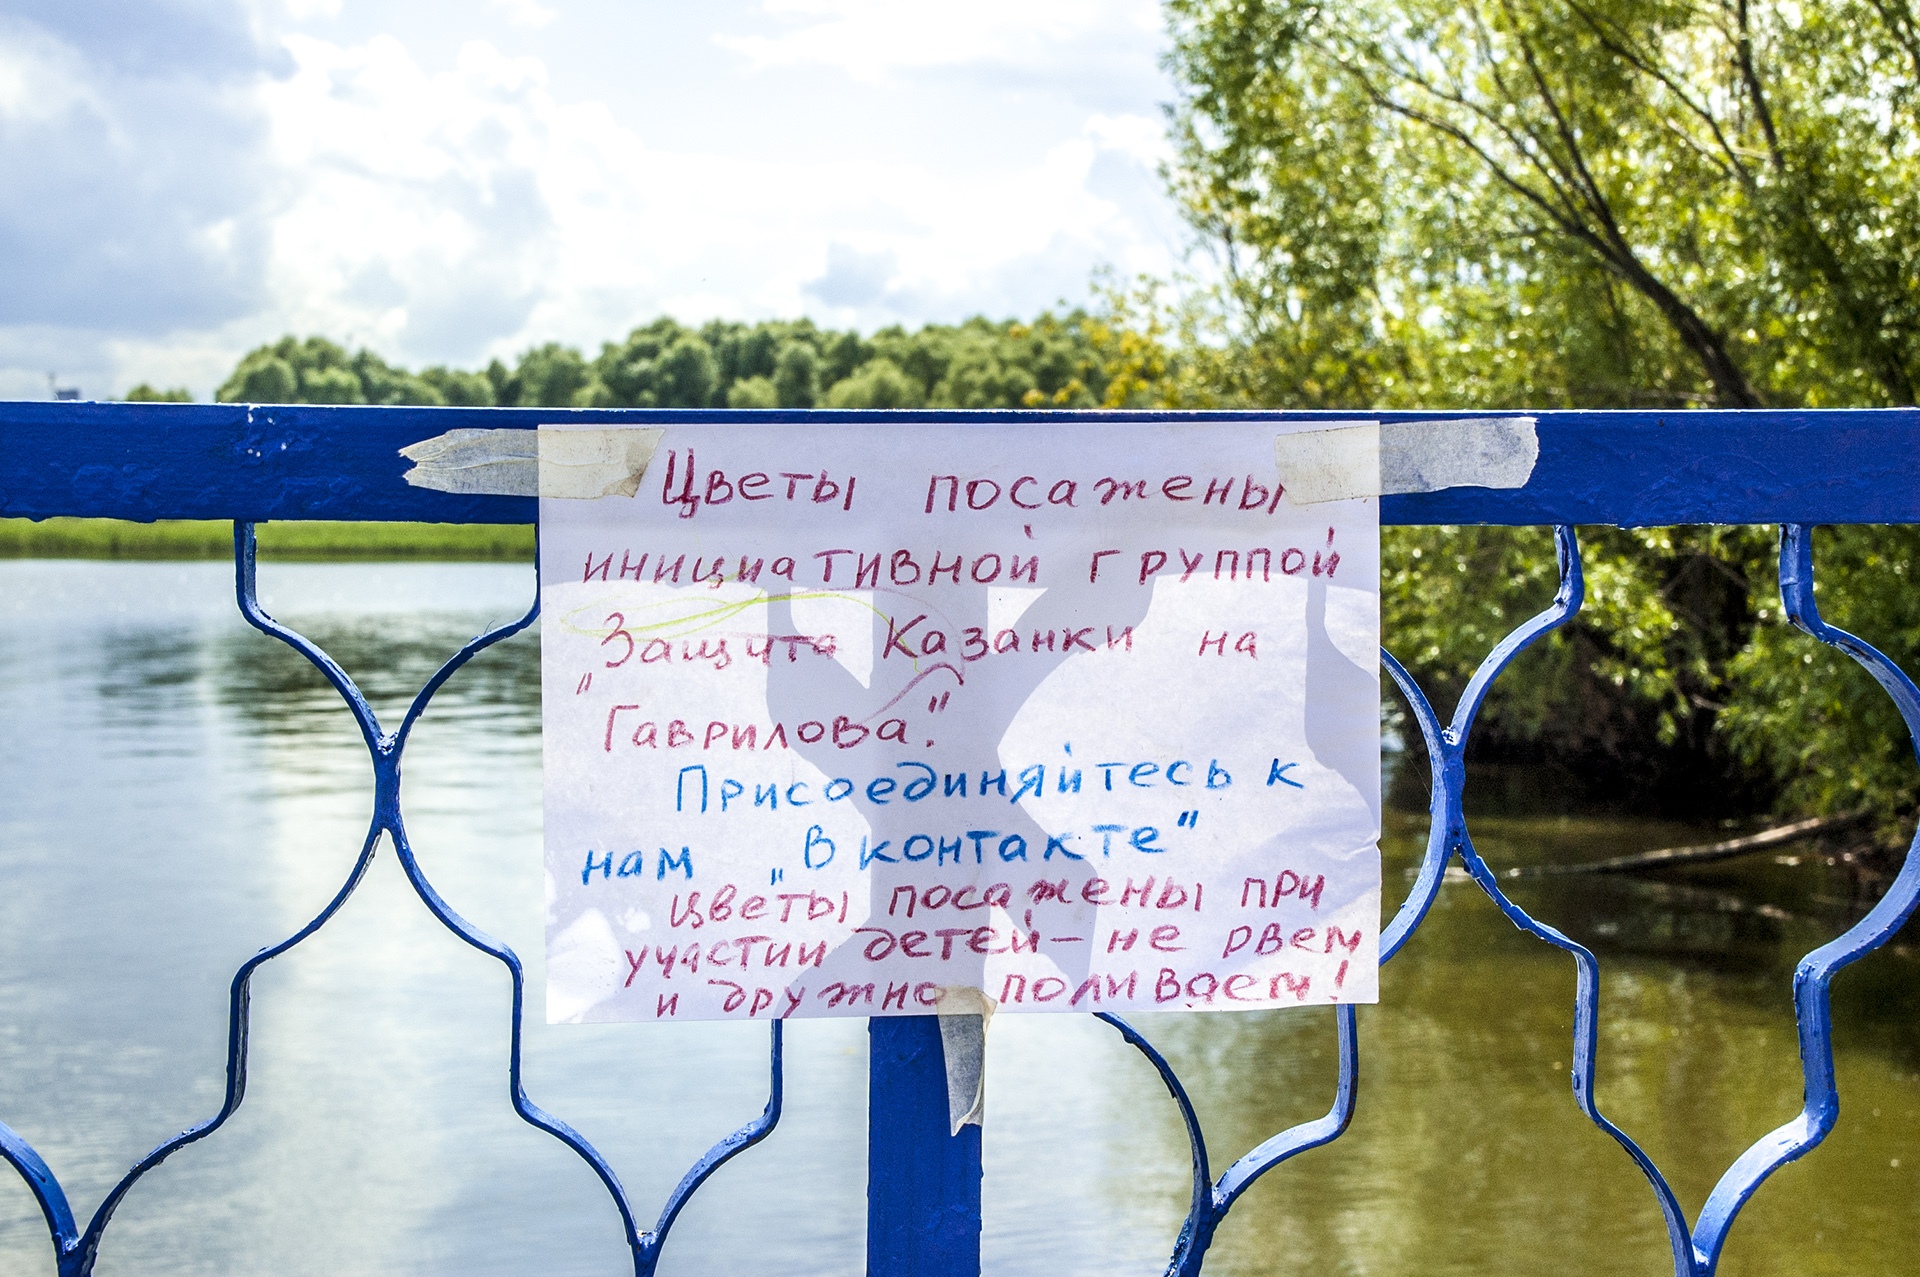 Цветы посажены
инициативной группой
„Защита Казанки на
Гаврилова."
Присоединяйтесь к
нам „Вконтакте"
Цветы посажены при
участии детей – не рвем
и дружно поливаем!